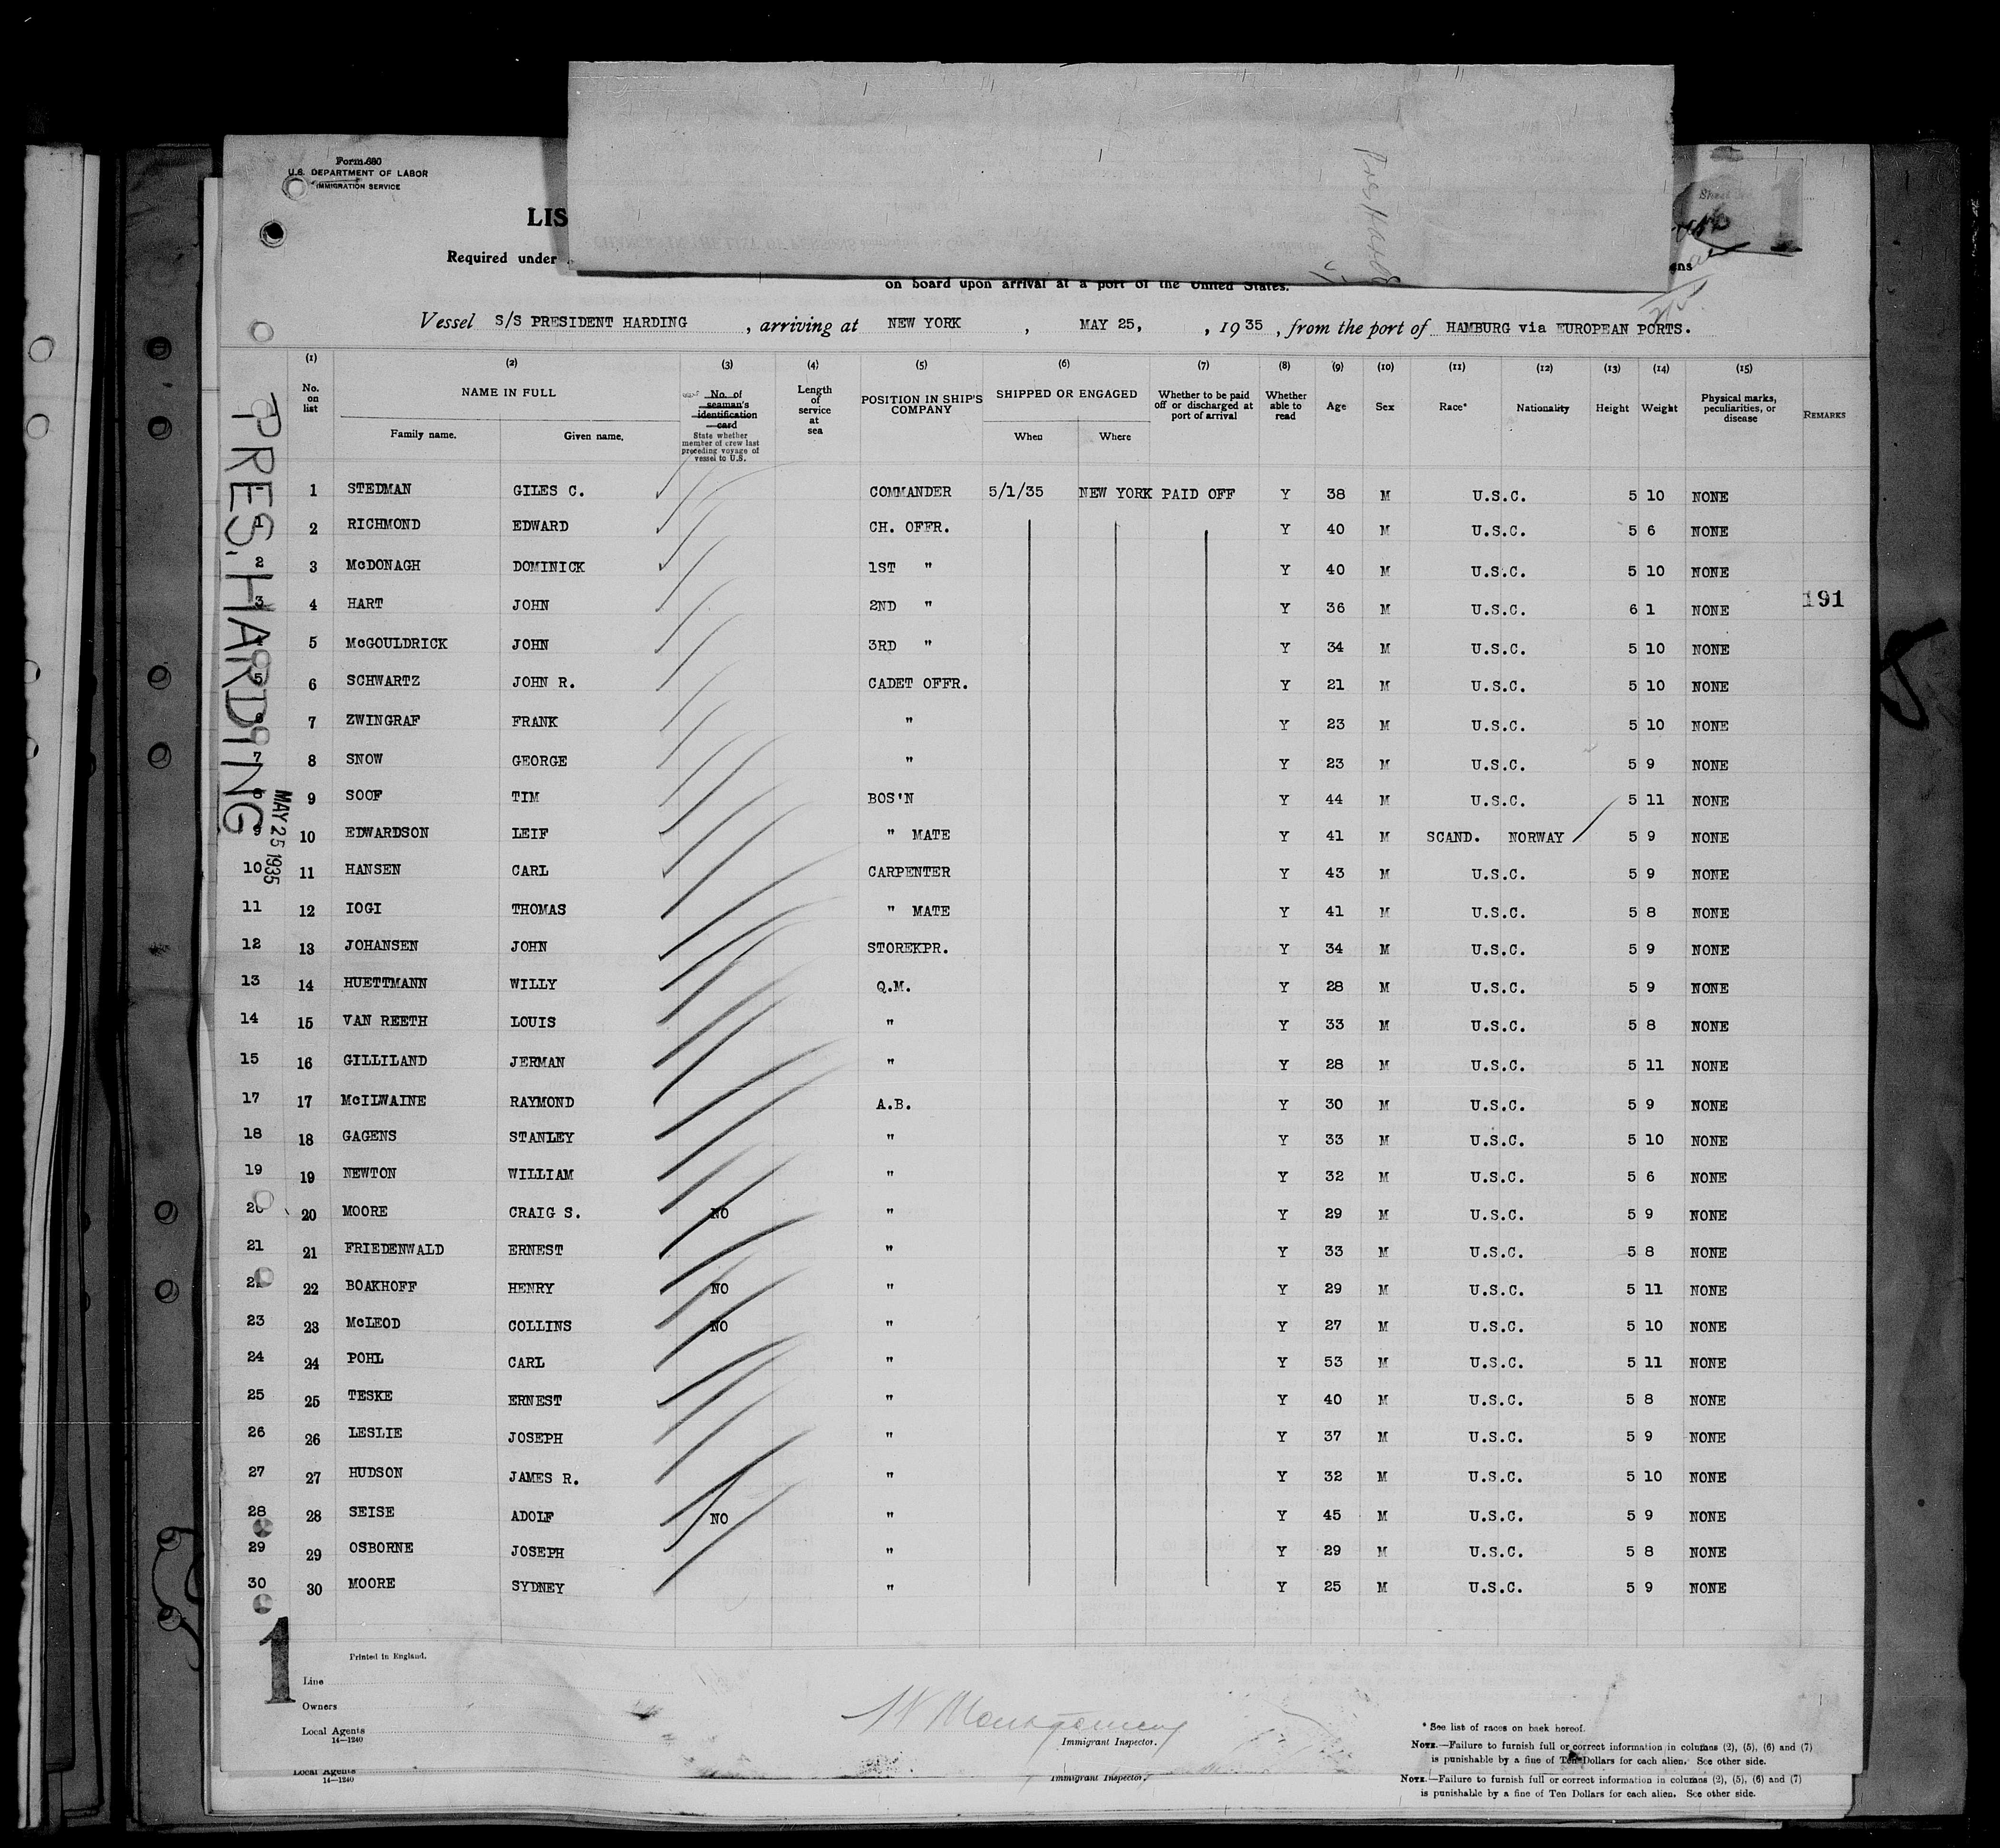 Form 680
U.S. DEPARTMENT OF LABOR
IMMIGRATION SERVICE
Pres Hard
LIS
Required under
ns
on board upon arrival at a port of the United States.
Vessel S/S PRESIDENT HARDING, arriving at NEW YORK, MAY 25, , 1935, from the port of HAMBURG via EUROPEAN PORTS.
(1) (2) (3) (4) (5) (6) (7) (8) (9) (10) (11) (12) (13) (14) (15)
No. on list
NAME IN FULL
Family name. Given name.
No. of seaman's identification card
State whether member of crew last preceding voyage of vessel to U.S.
Length of service at sea
POSITION IN SHIP'S COMPANY
SHIPPED OR ENGAGED
When Where
Whether to be paid off or discharged at port of arrival
Whether able to read
Age Sex Race* Nationality Height Weight
Physical marks, peculiarities, or disease
REMARKS
1 STEDMAN GILES C. COMMANDER 5/1/35 NEW YORK PAID OFF Y 38 M U.S.C. 5 10 NONE
1 2 RICHMOND EDWARD CH. OFFR. Y 40 M U.S.C. 5 6 NONE
2 3 McDONAGH DOMINICK 1ST " Y 40 M U.S.C. 5 10 NONE
3 4 HART JOHN 2ND " Y 36 M U.S.C. 6 1 NONE 191
4 5 McGOULDRICK JOHN 3RD " Y 34 M U.S.C. 5 10 NONE
5 6 SCHWARTZ JOHN R. CADET OFFR. Y 21 M U.S.C. 5 10 NONE
6 7 ZWINGRAF FRANK " Y 23 M U.S.C. 5 10 NONE
7 8 SNOW GEORGE " Y 23 M U.S.C. 5 9 NONE
8 9 SOOF TIM BOS'N Y 44 M U.S.C. 5 11 NONE
9 10 EDWARDSON LEIF " MATE Y 41 M SCAND. NORWAY 5 9 NONE
10 11 HANSEN CARL CARPENTER Y 43 M U.S.C. 5 9 NONE
11 12 IOGI THOMAS " MATE Y 41 M U.S.C. 5 8 NONE
12 13 JOHANSEN JOHN STOREKPR. Y 34 M U.S.C. 5 9 NONE
13 14 HUETTMANN WILLY Q.M. Y 28 M U.S.C. 5 9 NONE
14 15 VAN REETH LOUIS " Y 33 M U.S.C. 5 8 NONE
15 16 GILLILAND JERMAN " Y 28 M U.S.C. 5 11 NONE
17 17 McILWAINE RAYMOND A.B. Y 30 M U.S.C. 5 9 NONE
18 18 GAGENS STANLEY " Y 33 M U.S.C. 5 10 NONE
19 19 NEWTON WILLIAM " Y 32 M U.S.C. 5 6 NONE
20 20 MOORE CRAIG S. NO " Y 29 M U.S.C. 5 9 NONE
21 21 FRIEDENWALD ERNEST " Y 33 M U.S.C. 5 8 NONE
22 22 BOAKHOFF HENRY NO " Y 29 M U.S.C. 5 11 NONE
23 23 McLEOD COLLINS NO " Y 27 M U.S.C. 5 10 NONE
24 24 POHL CARL " Y 53 M U.S.C. 5 11 NONE
25 25 TESKE ERNEST " Y 40 M U.S.C. 5 8 NONE
26 26 LESLIE JOSEPH " Y 37 M U.S.C. 5 9 NONE
27 27 HUDSON JAMES R. " Y 32 M U.S.C. 5 10 NONE
28 28 SEISE ADOLF NO " Y 45 M U.S.C. 5 9 NONE
29 29 OSBORNE JOSEPH " Y 29 M U.S.C. 5 8 NONE
30 30 MOORE SYDNEY " Y 25 M U.S.C. 5 9 NONE
PRES. HARDING
MAY 25 1935
1
Printed in England.
Line
Owners
Local Agents
14—1240
W Montgomery
Immigrant Inspector.
* See list of races on back hereof.
NOTE.—Failure to furnish full or correct information in columns (2), (5), (6) and (7)
is punishable by a fine of Ten Dollars for each alien. See other side.
Local Agents
14—1240
Immigrant Inspector.
NOTE.—Failure to furnish full or correct information in columns (2), (5), (6) and (7)
is punishable by a fine of Ten Dollars for each alien. See other side.